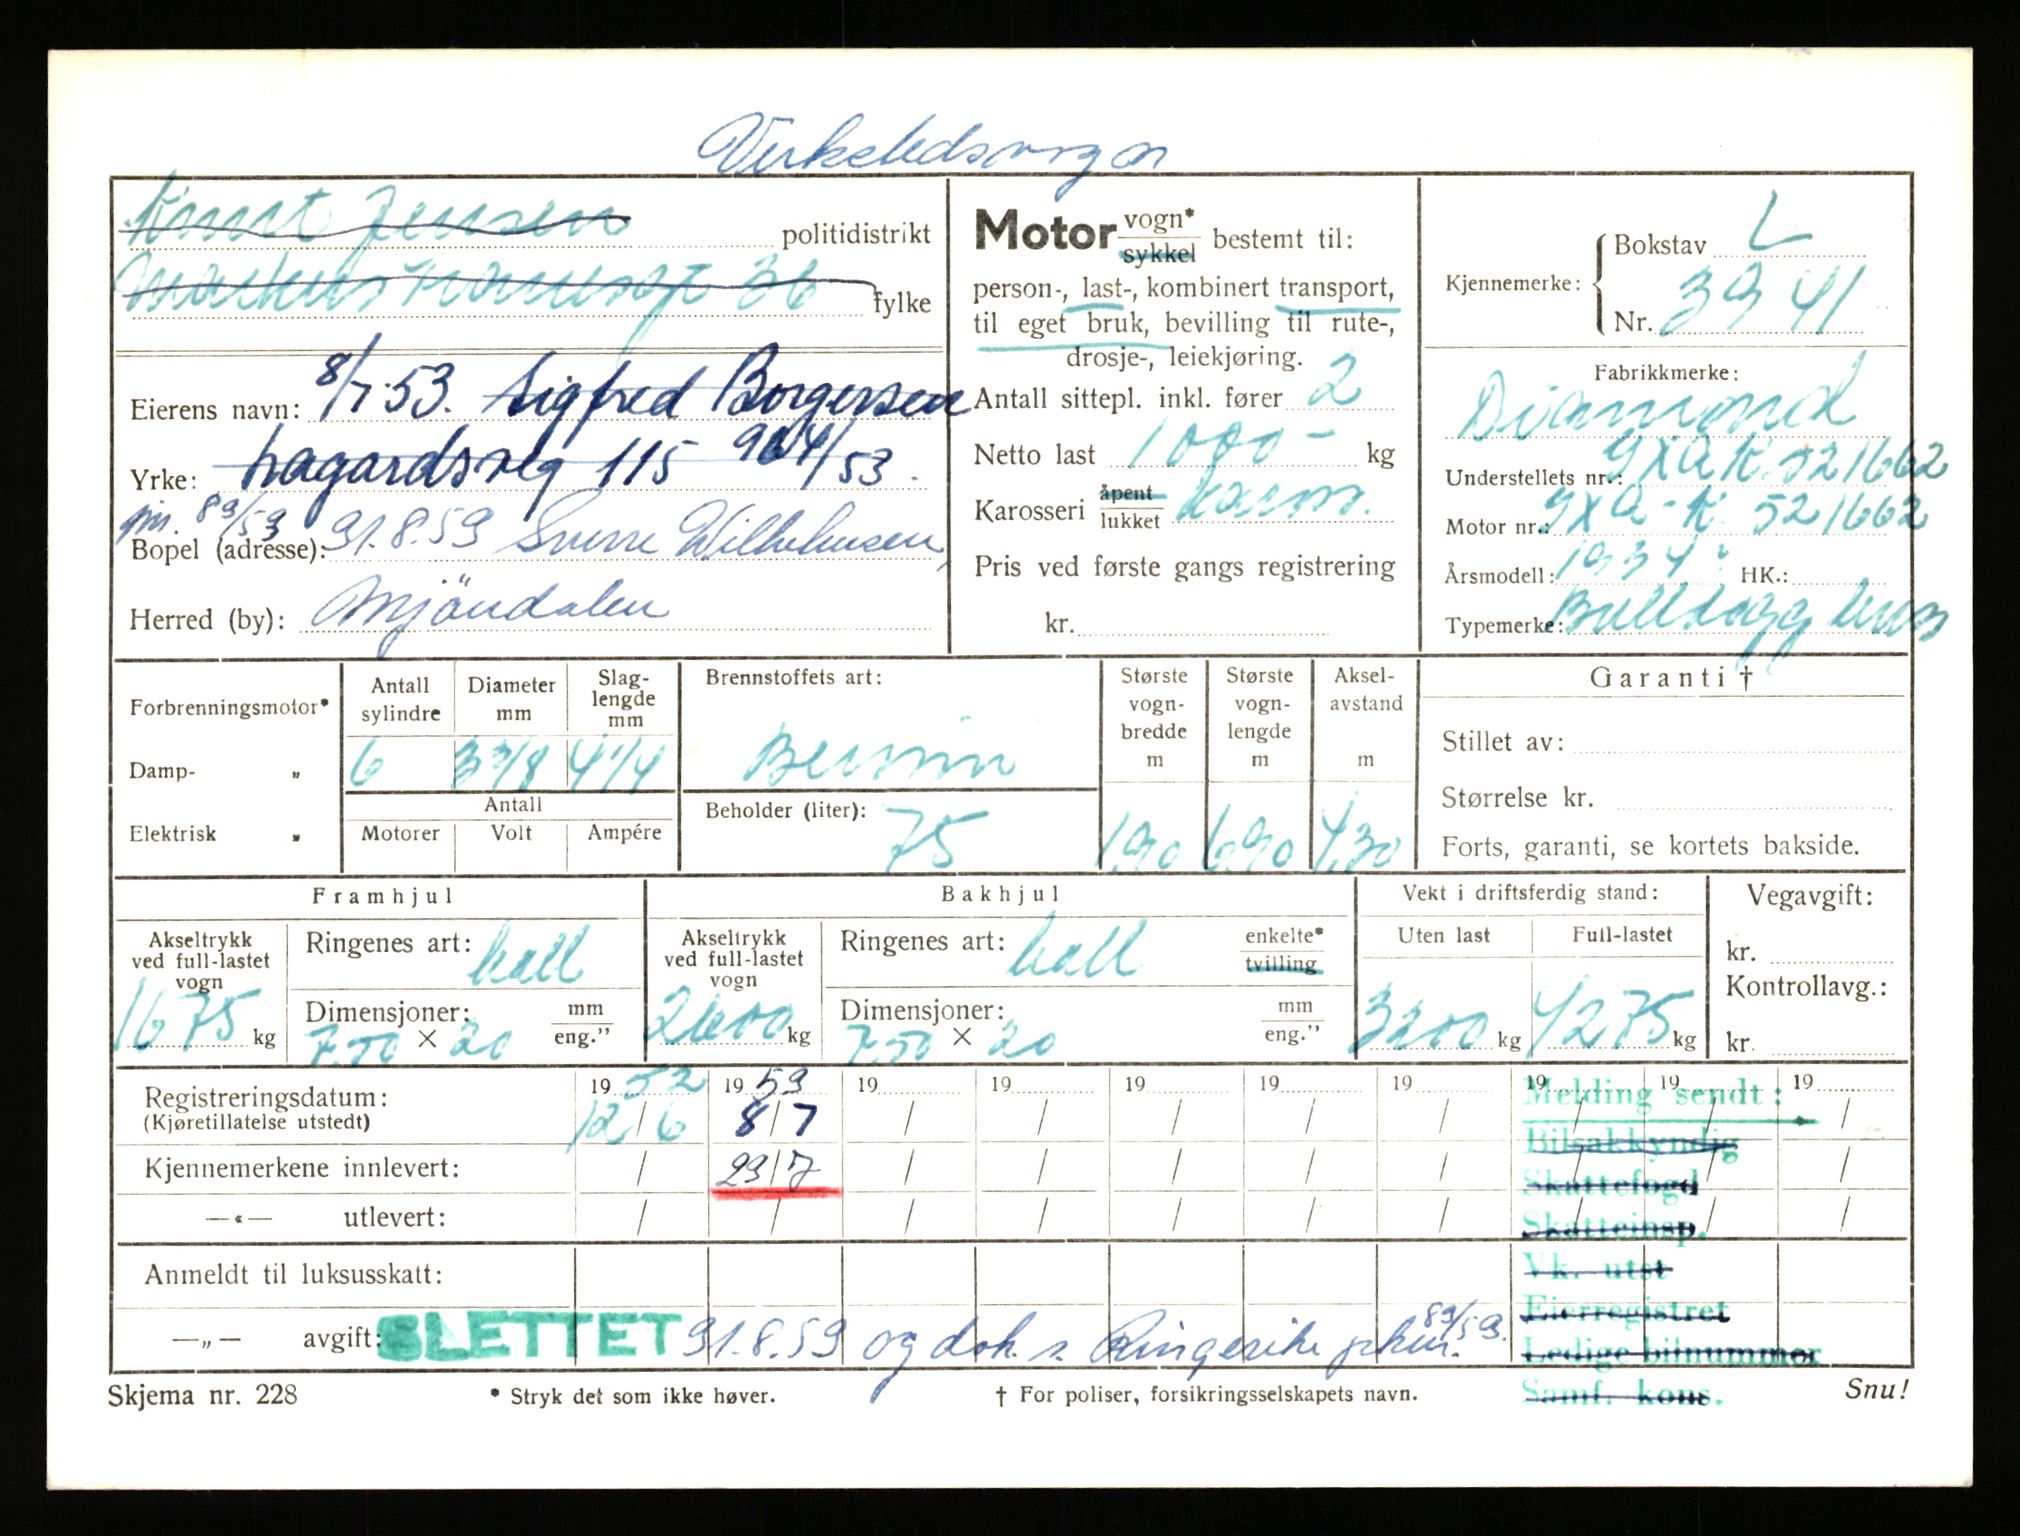 Virkeledsvogn
Knut Jensen politidistrikt
36 fylke
Eierens navn: 8/7 53. Sigfred Borgersen
Yrke: Lagårdsveg 115 964/53.
jnr. 89/53
Bopel (adresse): 31.8.53 Sverre Wilhelmsen,
Herred (by): Mjöndalen
Motor vogn* sykkel bestemt til:
person-, last-, kombinert transport,
til eget bruk, bevilling til rute-,
drosje-, leiekjøring.
Antall sittepl. inkl. fører 2
Netto last 1000- kg
Karosseri åpent lukket karm.
Pris ved første gangs registrering
kr.
Kjennemerke: Bokstav L
Nr. 3941
Fabrikkmerke:
Diamond
Understellets nr.: GXA K. 521662
Motor nr.: GXA-K. 521662
Årsmodell: 1934 HK.:
Typemerke: Bulldogg
Forbrenningsmotor*
Damp- „
Elektrisk „
Antall sylindre
Diameter mm
Slag-lengde mm
6 3 3/8 4 1/4
Antall
Motorer Volt Ampére
Brennstoffets art:
Bensin
Beholder (liter): 75
Største vogn-bredde m
1,90
Største vogn-lengde m
6,90
Aksel-avstand m
4,30
Garanti †
Stillet av:
Størrelse kr.
Forts, garanti, se kortets bakside.
Framhjul
Akseltrykk ved full-lastet vogn
1675 kg
Ringenes art: ball
Dimensjoner: mm
7.50 × 20 eng."
Bakhjul
Akseltrykk ved full-lastet vogn
2600 kg
Ringenes art: ball enkelte* tvilling
Dimensjoner: mm
7.50 × 20 eng."
Vekt i driftsferdig stand:
Uten last Full-lastet
3200 kg 4275 kg
Vegavgift:
kr.
Kontrollavg.:
kr.
Registreringsdatum: 19 52 19 53 19 19 19 19 19 19 19 19
(Kjøretillatelse utstedt) 12/6 8/7 / / / / / / / /
Kjennemerkene innlevert: / 23/7 / / / / / / / /
—«— utlevert: / / / / / / / / / /
Anmeldt til luksusskatt:
—„— avgift: SLETTET 31.8.53 og dok. s. Ringerike pkm. 89/53.
Melding sendt:
Bilsakkyndig
Skattefogd
Skatteinsp.
Vk. utst
Eierregistret
Ledige bilnummer
Samf. kons.
Skjema nr. 228
* Stryk det som ikke høver.
† For poliser, forsikringsselskapets navn.
Snu!